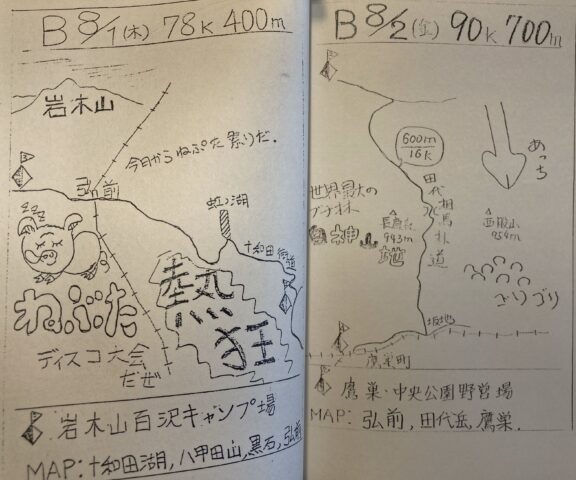 B 8/1 (木) 78k 400m
岩木山
今日からねぷた祭りだ.
弘前
虹ノ湖
十和田
zzz zzz
ねぶた
ディスコ大会
だぜ
熱
狂
岩木山百沢キャンプ場
MAP: 十和田湖, 八甲田山, 黒石, 弘前
B 8/2 (金) 90k 700m
600m
16k
めっち
世界最大の
ブナ林
神山地
943m
田代相馬林道
954m
ごりゴリ
鷹巣町
鷹巣・中央公園野営場
MAP: 弘前, 田代岳, 鷹巣.